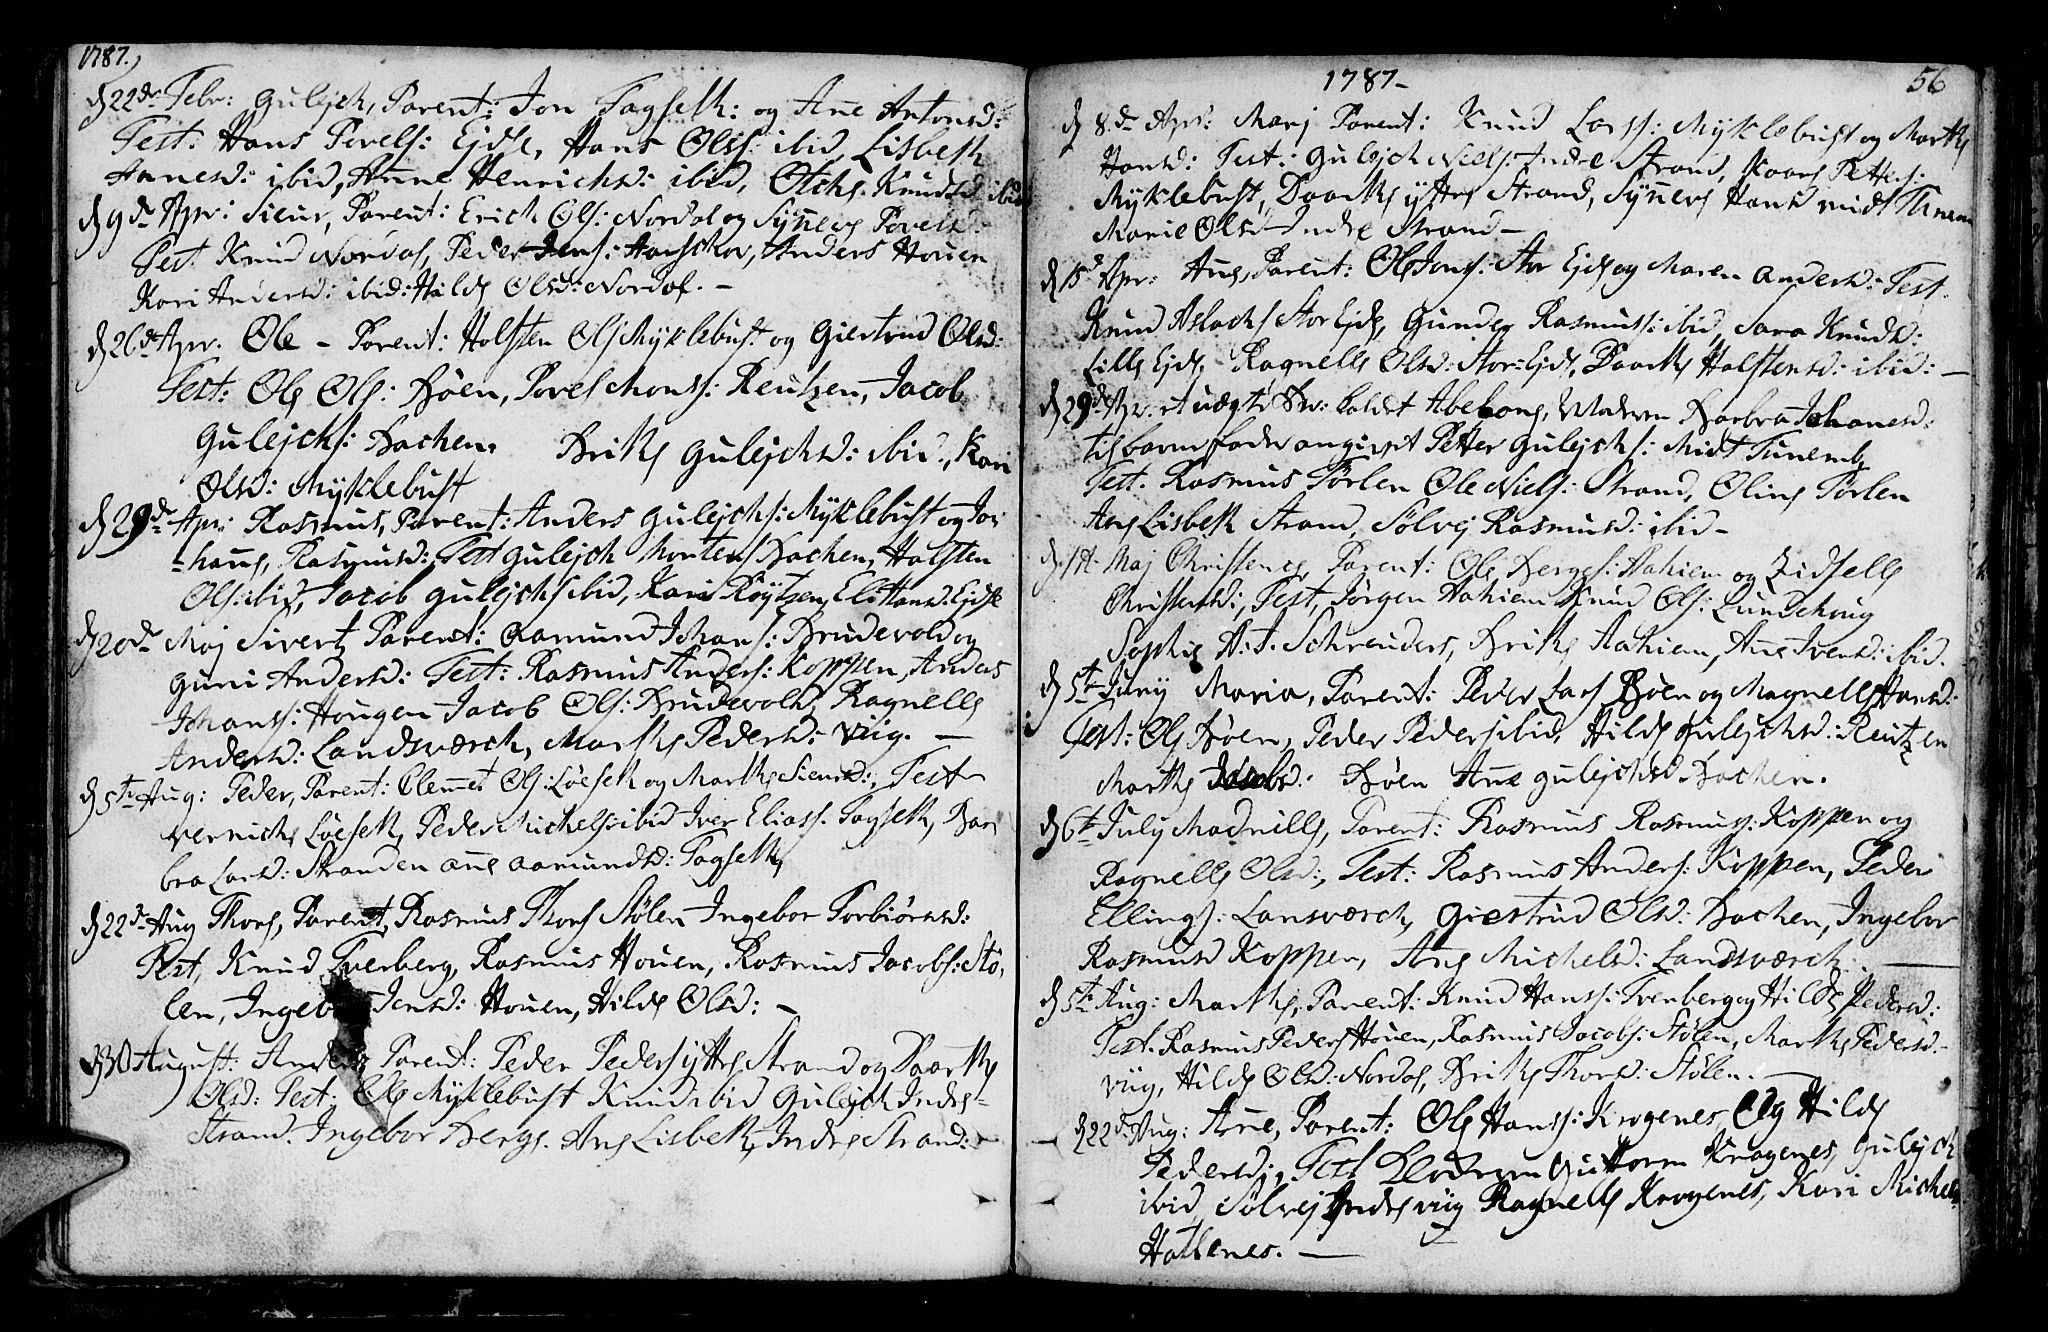 1787.
d 22de Febr: Gulejch, Parent: Jon Fagseth: og Ane Antonsd:
Test: Hans Povels: Ejdse, Hans Ols: ibid, Lisbeth
Annesd: ibid, Anne Henrichsd: ibid, Knudsd ibid
d 9de Apr: Siuer, Parent: Erich Ols: Nordal og Synneve Povelsd:
Test Knud Nordal, Peder Jens: Anders Houen
Kari Andersd: ibid: Hilde Olsd: Nordal. -
d 26de Apr. Ole - Parent: Holsten Ols Myklebust og Giertrud Olsd:
Test: Ole Ols: Bøen, Povel Mons: Reutzen, Jacob
Gulejchs: Bachen. Birthe Gulejchsd: ibid, Kari
Olsd: Myklebust
d 29de Apr: Rasmus, Parent: Anders Gulejchs: Myklebust og Jo-
hanne Rasmusd: Test Gulejch Bachen, Holsten
Ols: ibid, Jacob Gulejchs ibid, Kari Røytzen, Eli Hansd. Ejdse
d 20de Maj Sivert, Parent: Aamund Johans: Brudevold og
Guri Andersd: Test: Rasmus Anders: Koppen, Anders
Johans: Hougen Jacob Ols: Brudevold, Ragnelle
Andersd: Landsværch, Marthe Pedersd: Viig. -
d 5te Aug: Peder, Parent: Clemmet Ols: Løeseth og Marthe Test
Løeseth, Peder Michels: ibid Iver Elias: Fagseth, Bar
bra Larsd: Stranden Ane Aamundsd: Fagseth,
d 22de Aug Thore, Parent, Rasmus Thors Stølen Ingebor Torbiørnsd:
Test, Knud Tverberg, Rasmus Houen, Rasmus Jacobs: Stø,
len, Ingebor Jensd: Houen, Hilde Olsd: -
d 30 August: Anders Parent: Peder Peders ytter Strand og Daarthe
Olsd: Test: Ole Myklebust Knud ibid Gulejch Indre-
Strand. Ingebor Berge. Ane Lisbeth, Indre Strand:
1787- 56
d 8de Apr: Mari Parent: Knud Lars: Myklebust og Marthe
Hansd: Test: Gulejch Niels: Indre Strand, Koars Petters:
Myklebust, Daarthe yttre Strand, Synneve Hansd midt Tunem
Marie Olsd Indre Strand -
d 15de Apr: Ane, Parent: Ole Jons: Stor Ejde og Maren Andersd: Test.
Knud Aslachs Stor Ejde, Gunder Rasmus: ibid, Sara Knudsd:
Lille Ejde Ragnelle Olsd: Stor: Ejde, Daarthe Holstensd: ibid: -
d 29de Apr. Uægte kaldet Abelone, Moderen Barbra Johansd:
til barnefader angivet Petter Gulejchs: Midt Tunem
Test. Rasmus Førlen Ole Niels: Strand, Oline Førlen
Ane Lisbeth Strand, Sølvej Rasmusd: ibid -
d. 1st Maj Christence, Parent: Ole Berges: Aahiem og Zidselle
Christensd: Test, Jørgen Aahiem Knud Ols: Lundehoug
Sophie A. S. Schreuders, Birthe Aahiem, Ane Iversd: ibid.
d 5te Juny Maria, Parent: Peder Lars Bøen og Magnelle Hansd:
Test: Ole Bøen, Peder Peders ibid, Hilde Gulejchsd: Reutzen
Marthe Jacobsd: Bøen Ane Gulejchsd Bachen.
d 6te July Madnille, Parent: Rasmus Rasmus: Koppen og
Ragnelle Olsd:, Test: Rasmus Anders: Koppen, Peder
Ellings: Lansværch, Giertrud Olsd: Bachen, Ingebor
Rasmusd Koppen, Ane Michelsd: Landsværch. -
d 5te Aug: Marthe, Parent: Knud Hans: Tverberg og Hilde Pedersd:
Test. Rasmus Peders Houen, Rasmus Jacobs: Stølen, Marthe Pedersd:
Viig, Hilde Olsd: Nordal, Birthe Thorsd: Stølen. -
d 22de Aug: Ane, Parent: Ole Hans: Krogenes Og Hilde
Pedersd:, Test Guttorm Krogenes, Gulejch
ibid, Sølvej Indre Viig Ragnelle Krogenes, Kari Michels
Hatlenes. -